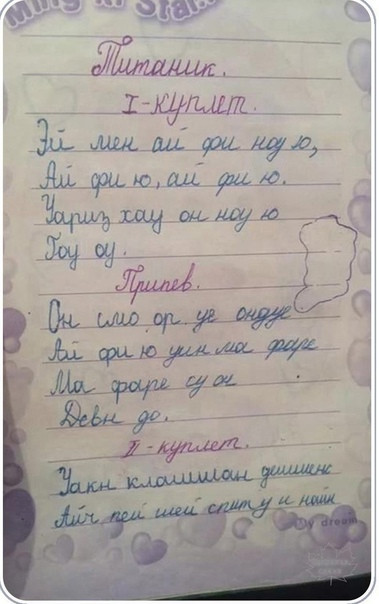 ming in Star...
Титаник.
I-куплет.
Эй мен ай фи ноу ю,
Ай фи ю, ай фи ю.
Уариз хау он ноу ю
Гоу оу.
Припев.
Он смо ор уе ондуе
Ай фи ю уин ма фаре
Ма фаре су он
Девн до.
II-куплет.
Уакн клашшан дешшене
Айч пей шей спиту и найн
My dream